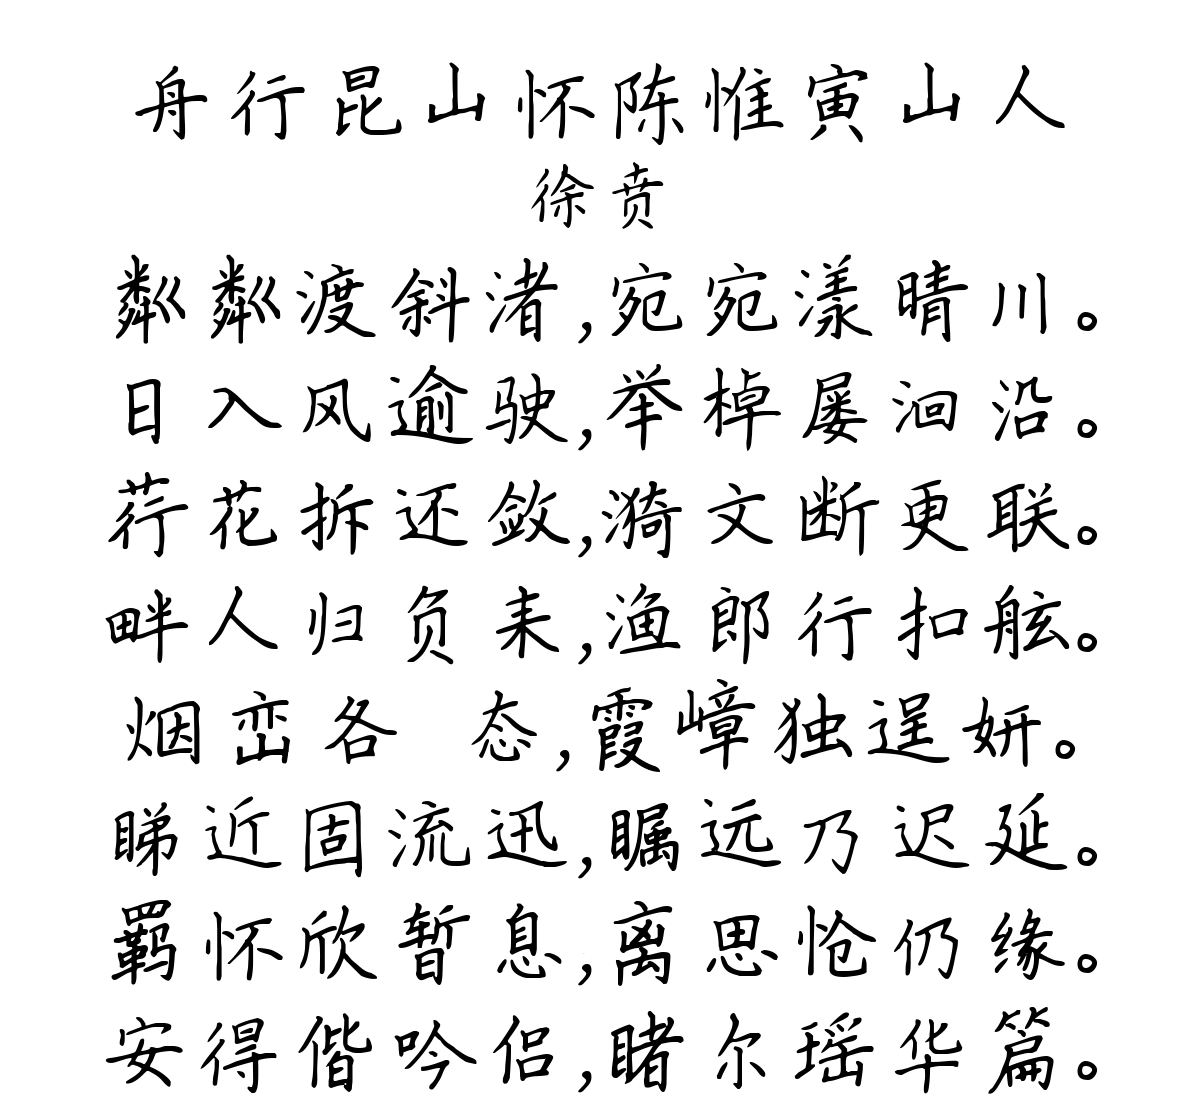 舟行昆山怀陈惟寅山人
徐贲
粼粼渡斜渚,宛宛漾晴川。
日入风逾驶,举棹屡洄沿。
荇花拆还敛,漪文断更联。
畔人归负耒,渔郎行扣舷。
烟峦各 态,霞嶂独逞妍。
睇近固流迅,瞩远乃迟延。
羁怀欣暂息,离思怆仍缘。
安得偕吟侣,睹尔瑶华篇。